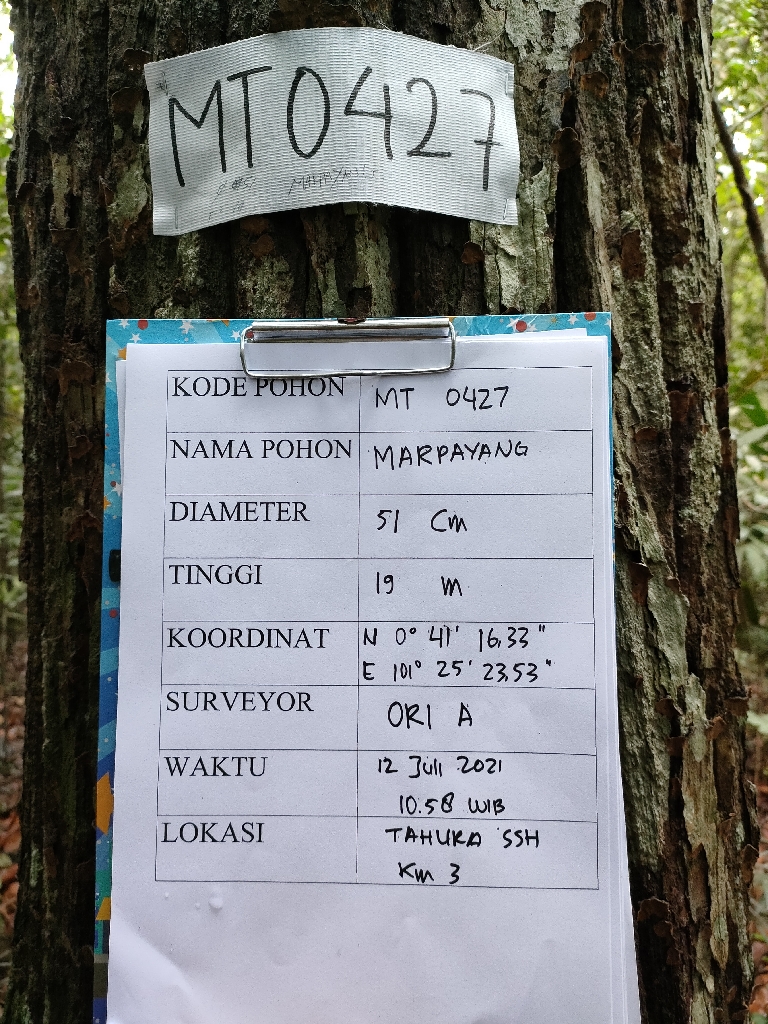 MT0427
KODE POHON MT 0427
NAMA POHON MARPAYANG
DIAMETER 51 Cm
TINGGI 19 m
KOORDINAT N 0° 41' 16,33"
E 101° 25' 23,53"
SURVEYOR ORI A
WAKTU 12 Juli 2021
10.58 WIB
LOKASI TAHURA SSH
Km 3